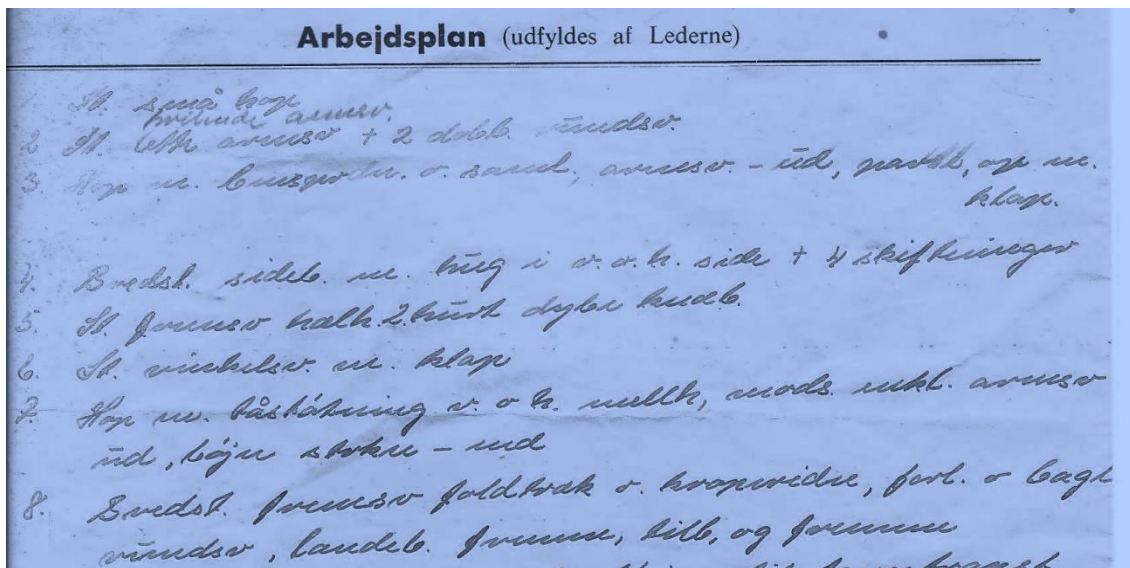 Arbejdsplan (udfyldes af Lederne)
1. St. små hop
hvilende armsv.
2 St. armsv + 2 dobb. rundsv.
3. Hop m. o. saml, armsv. - ud, op m.
klap.
4. Bredst. sideb. m. hug i v. o. h. side + 4 skiftninger
5. St. fremsv 2 hurt dybe knæb.
6. St. vinkelsv. m. klap
7. Hop m. tåstøtning v. o h. mellh, mods. enkl. armsv
ud, bøjn strkn - ned
8. Bredst. fremsv foldtræk o. kropvridn, forl. o bagl
rundsv, landeb. fremme, tilb, og fremme